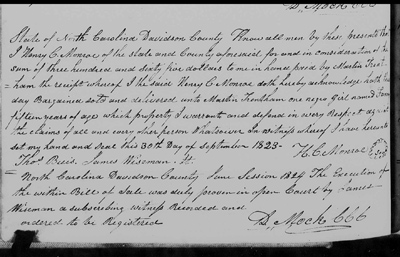 D. Mock CCC
State of North Carolina Davidson County Know all men by these presents that
I Henry C. Monroe of the state and County aforesaid for and in consideration of the
sum of three hundred and sixty five dollars to me in hand paid by Martin
ham the receipt whereof I the said Henry C Monroe doth hereby acknowledge hath this
day Bargained sold and delivered unto Martin one negro girl named
fifteen years of age which property I warrant and defend in every Respect against
the claims of all and every other person Whatsoever In witness whereof I have hereunto
set my hand and seal this 30th Day of September 1823 H. C. Monroe
James Wiseman
North Carolina Davidson County June Session 1824 The Execution of
the within Bill of Sale was duly proven in open Court by James
Wiseman a subscribing witness Recorded and
ordered to be Registered
D. Mock CCC